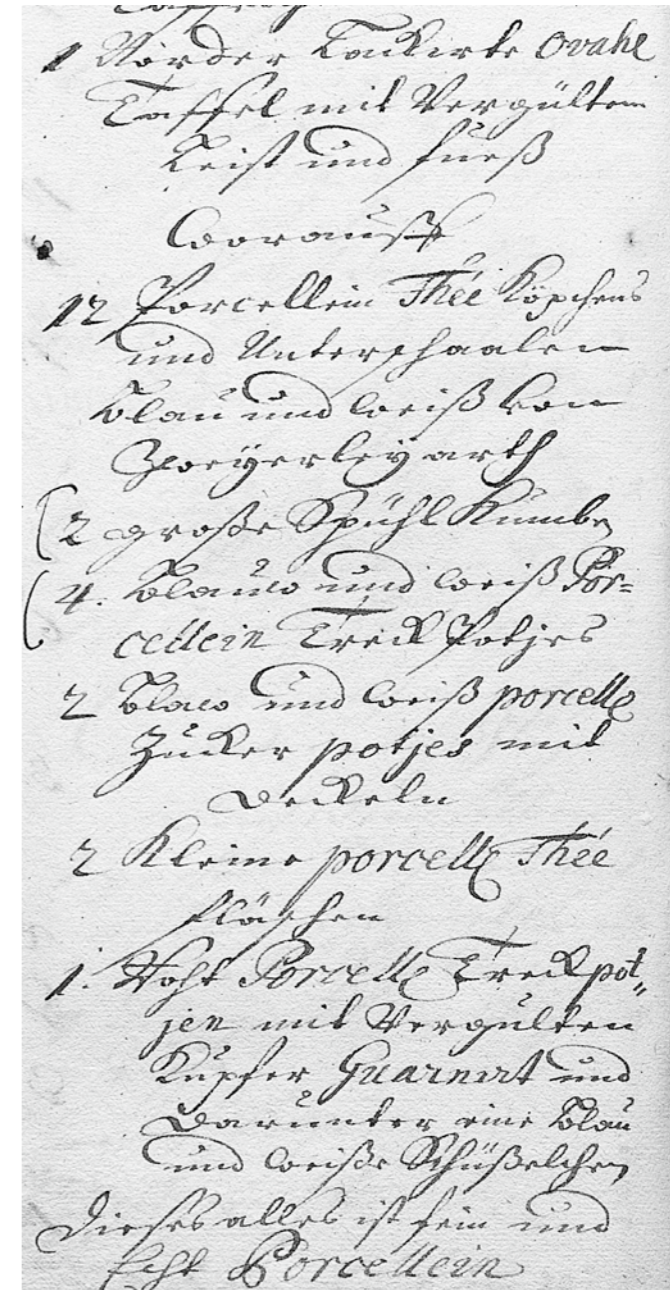 1 Nörder Lackirte Ovahle
Taffel mit Vergülten
Leist und fueß
Worauff
12 Porcellein Thée Köpchens
und Unterschaalen
blau und weiß von
Zweyerley arth
2 große Spühl Kumbe
4. blauw und weiß Por=
cellein Treck Potjes
2 blaw und weiß porcell
Zucker potjes mit
Deckeln
2 Kleine porcell Thée
fläschen
1. Roht Porcell Treckpot„
jen mit Vergulten
Kupfer Guarnirt und
darunter eine blau
und weiße Schüßelchen
Dieses alles ist fein und
Echt Porcellein